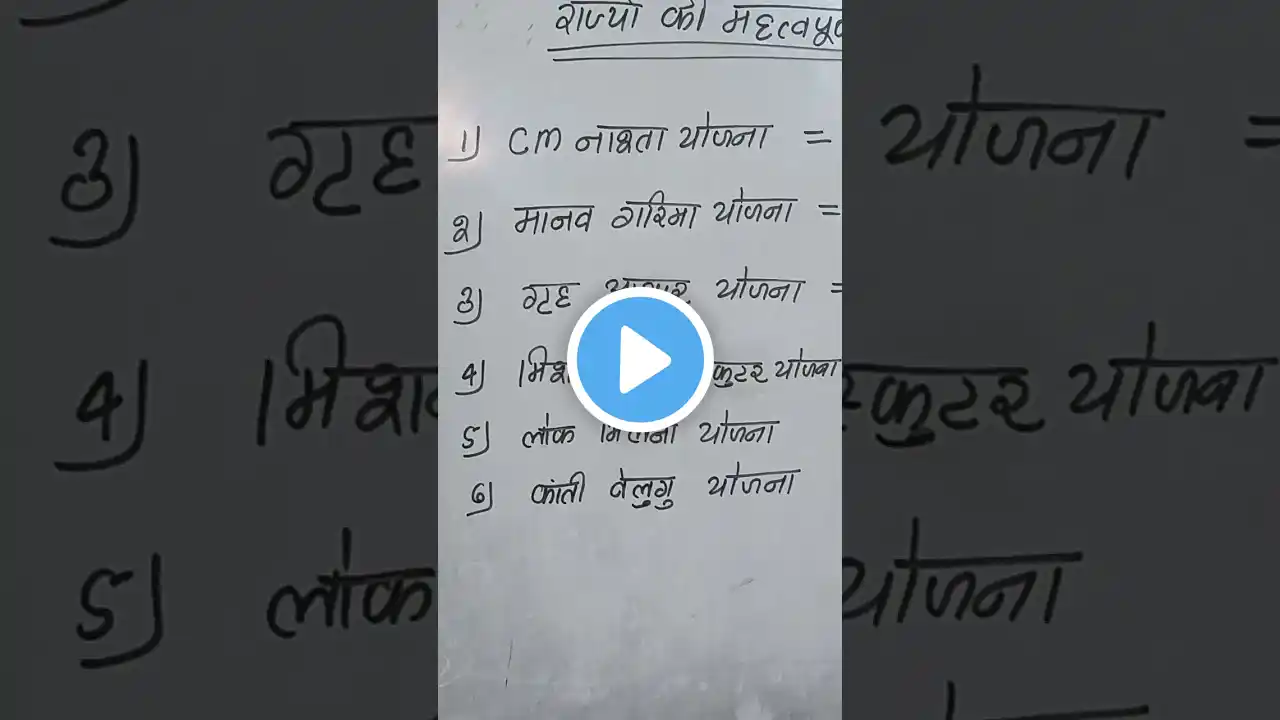 राज्यो की महत्वपू
1) CM नाश्ता योजना =
2) मानव गरिमा योजना =
3) गृह योजना =
4) योजना
5) लोक योजना
6) कांती वेलुगु योजना